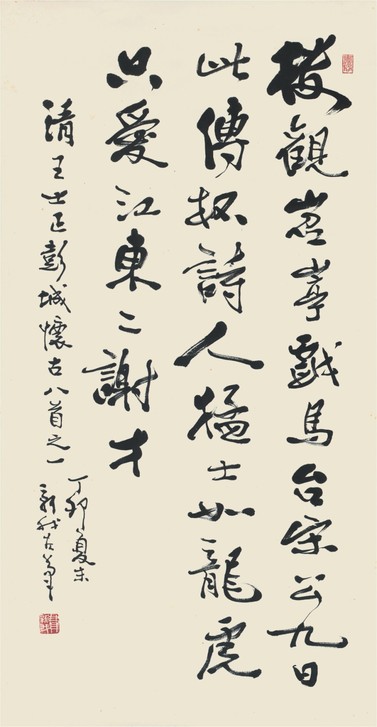 楼觀岧嵉戲馬台宋公九日
此傳杯詩人猛士如龍虎
只愛江東二謝才
清王士正彭城懷古八首之一
丁卯夏末
新我左筆